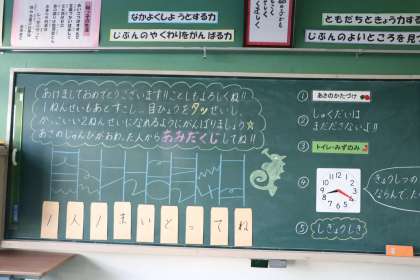 なかよくしようとする力
じぶんのやくわりをがんばる力
ともだちときょう力す
じぶんのよいところを見つ
あけましておめでとうございます!!ことしもよろしくね!!
1ねんせいもあとすこし…目ひょうをタッせいし、
かっこいい2ねんせいになれるようにがんばりましょう☆
あさのじゅんびがおわった人からあみだくじしてね!!
1人1まいとってね
① あさのかたづけ
② しゅくだいは
まだださないよ!!
③ トイレ・みずのみ
④
きょうしつの
ならんで、た
⑤ しぎょうしき